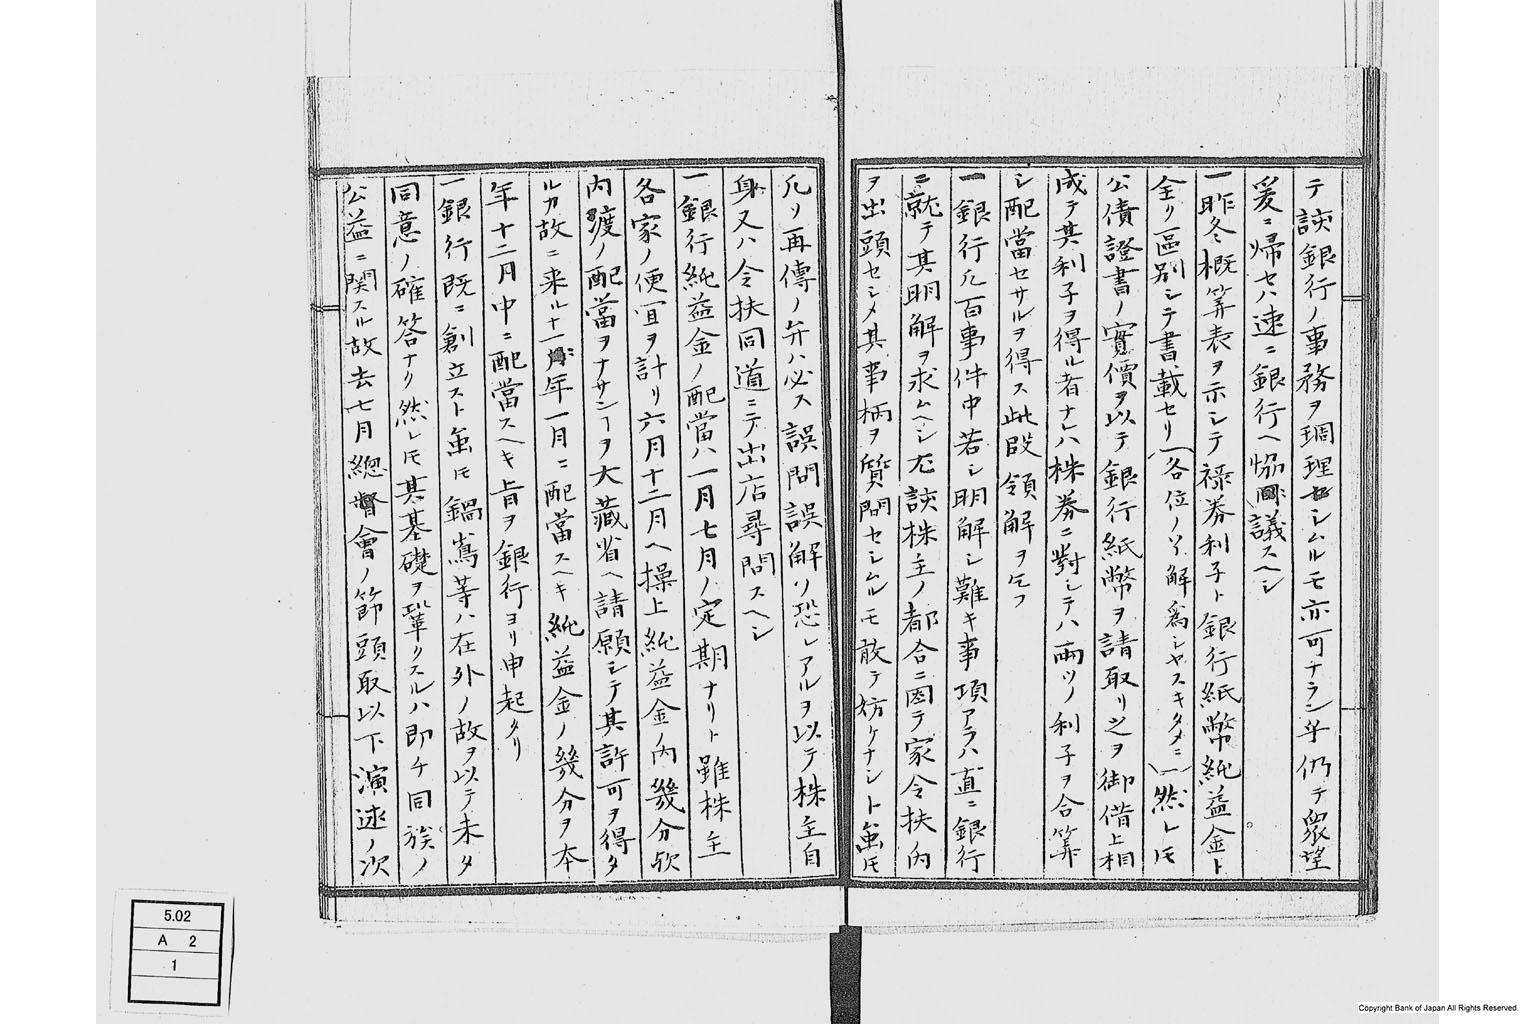 テ該銀行ノ事務ヲ調理セシムルモ亦可ナラン乎仍テ衆望
爰ニ帰セハ速ニ銀行ヘ協議スヘシ
一昨冬概算表ヲ示シテ禄券利子ト銀行紙幣純益金ト
全ク區別シテ書載セリ(各位ノ了解為シヤスキタメニ)然レ𪜈
公債證書ノ實價ヲ以テ銀行紙幣ヲ請取リ之ヲ御借上相
成テ其利子ヲ得ル者ナレハ株券ニ對シテハ兩ツノ利子ヲ合算
シ配當セサルヲ得ス此段領解ヲ乞フ
一銀行凡百事件中若シ明解シ難キ事項アラハ直ニ銀行
ニ就テ其明解ヲ求ムヘシ尤該株主ノ都合ニ因テ家令扶内
ヲ出頭セシメ其事柄ヲ質問セシムルモ敢テ妨ケナシト虽𪜈
凡ソ再傳ノ弁ハ必ス誤問誤解ノ恐レアルヲ以テ株主自
身又ハ令扶同道ニテ出店尋問スヘシ
一銀行純益金ノ配當ハ一月七月ノ定期ナリト雖株主
各家ノ便宜ヲ計リ六月十二月ヘ操上純益金ノ内幾分欤
内渡ノ配當ヲナサンヿヲ大藏省ヘ請願シテ其許可ヲ得タ
ルカ故ニ来ル十一年一月ニ配當スヘキ純益金ノ幾分ヲ本
年十二月中ニ配當スヘキ旨ヲ銀行ヨリ申起タリ
一銀行既ニ創立スト虽𪜈鍋嶌等ハ在外ノ故ヲ以テ未タ
同意ノ確答ナリ然レ𪜈其基礎ヲ鞏クスルハ即チ同族ノ
公益ニ関スル故去七月總會ノ節頭取以下演述ノ次
5.02
A 2
1
Copyright Bank of Japan All Rights Reserved.